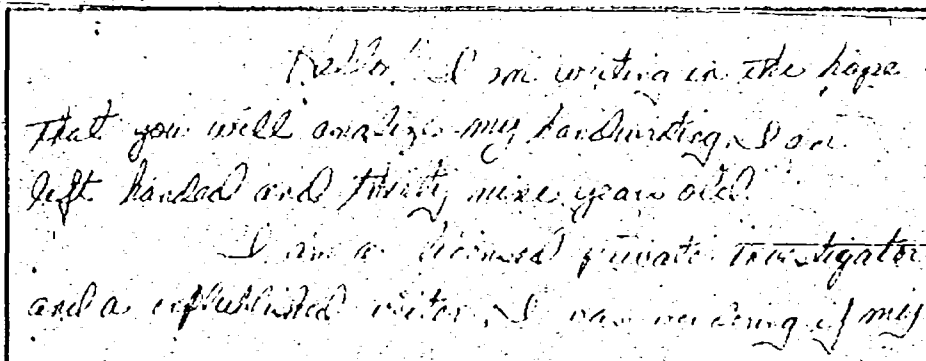 Hello! I am writing in the hope
that you will analize my handwriting. I am
left handed and thirty nine years old.
I am a licensed private investigator
and a unpublished writer. I was wondering if my